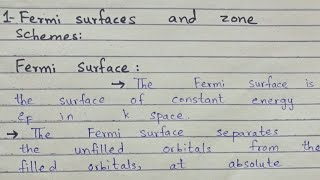 1- Fermi surfaces and zone
schemes:
Fermi Surface:
→ The Fermi surface is
the surface of constant energy
εF in k space.
→ The Fermi surface separates
the unfilled orbitals from the
filled orbitals, at absolute